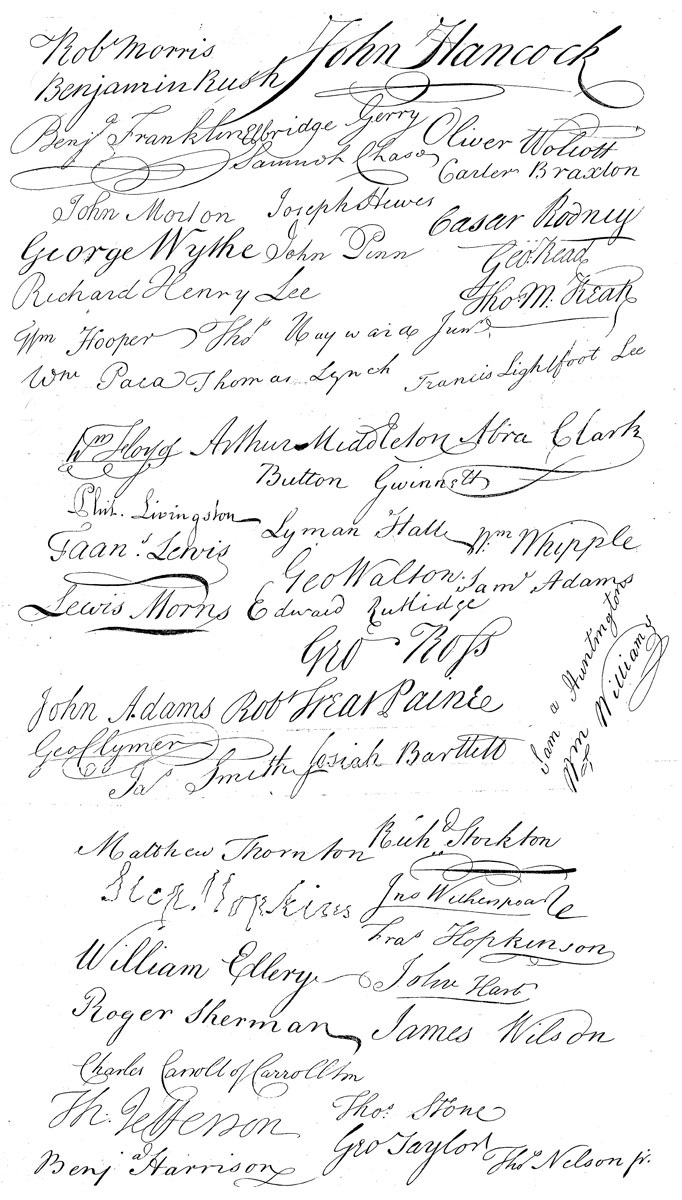 Robt Morris
John Hancock
Benjamin Rush
Benja Franklin
Elbridge Gerry
Oliver Wolcott
Samuel Chase
Carter Braxton
John Morton
Joseph Hewes
Casar Rodney
George Wythe
John Penn
Geo Read
Richard Henry Lee
Tho M. Kean
Wm Hooper
Thos Hayward Junr
Wm Paca
Thomas Lynch
Francis Lightfoot Lee
Wm Floyd
Arthur Middleton
Abra Clark
Button Gwinnett
Phil. Livingston
Lyman Hall
Wm Whipple
Frans. Lewis
Geo Walton.
Saml Adams
Lewis Morris
Edward Rutlidge
Geo Ross
Saml Huntington
Wm Williams
John Adams
Robt Treat Paine
Geo Clymer
Jas Smith
Josiah Bartlett
Matthew Thornton
Richd Stockton
Step. Hopkins
Jno Witherspoon
Fras Hopkinson
William Ellery
John Hart
Roger Sherman
James Wilson
Charles Carroll of Carrollton
Th. Jefferson
Thos Stone
Geo Taylor
Benja Harrison
Thos Nelson jr.